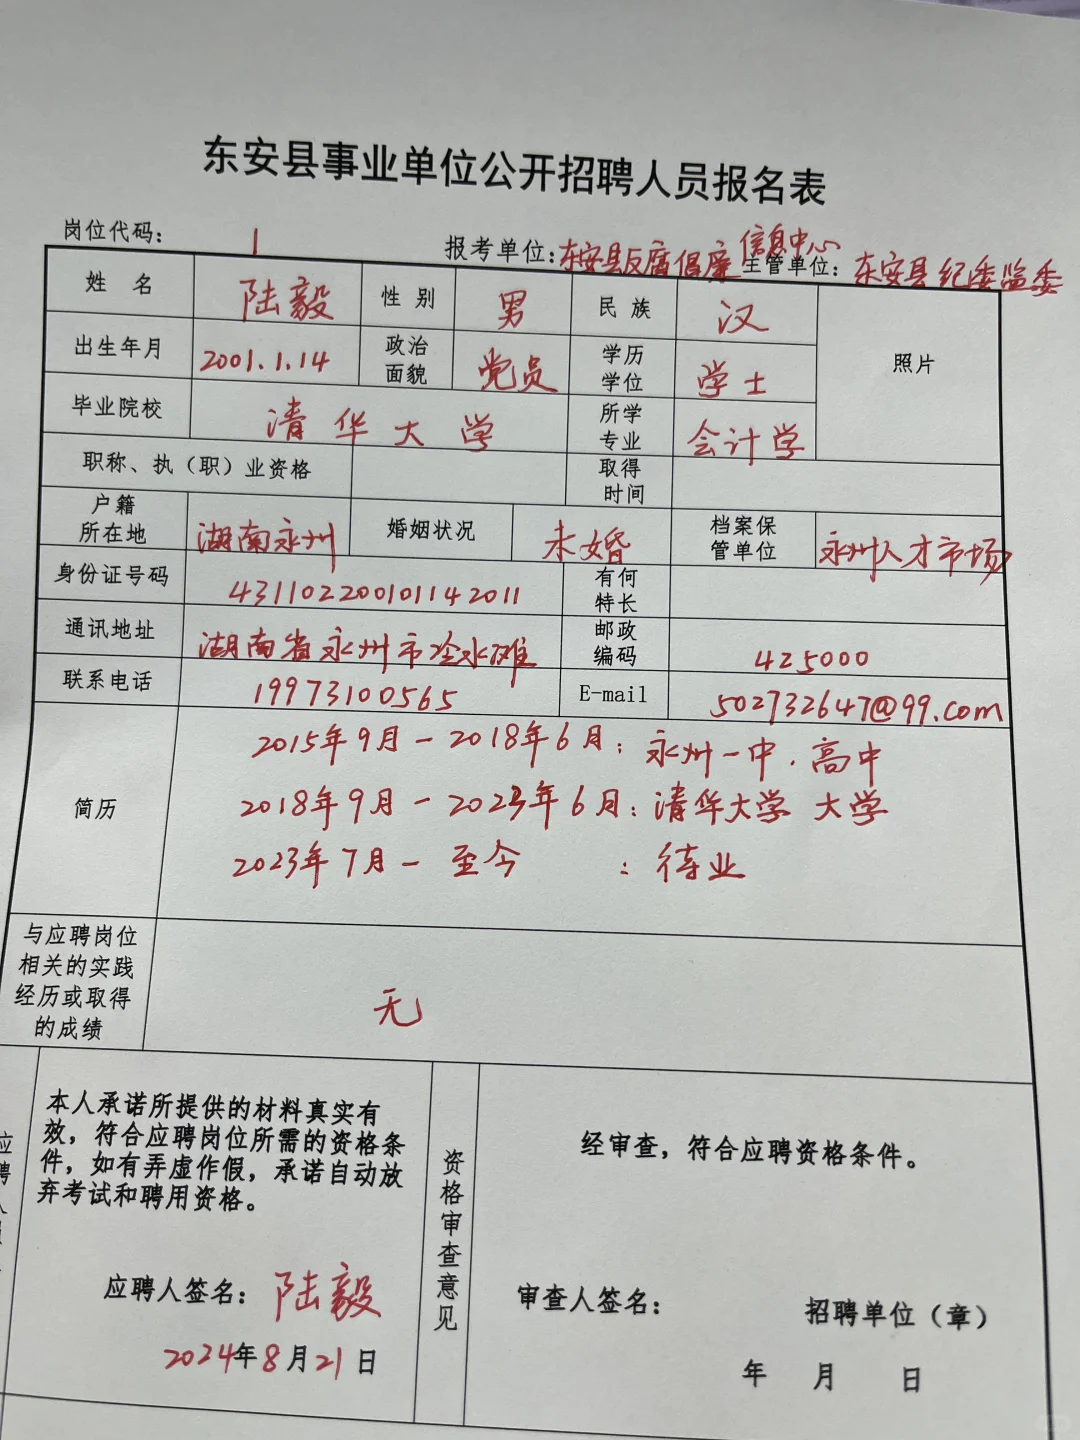 东安县事业单位公开招聘人员报名表
岗位代码: 1 报考单位:东安县反腐倡廉信息中心 主管单位:东安县纪委监委
姓 名 陆毅 性 别 男 民 族 汉 照片
出生年月 2001.1.14 政治面貌 党员 学历学位 学士
毕业院校 清华大学 所学专业 会计学
职称、执(职)业资格 取得时间
户籍所在地 湖南永州 婚姻状况 未婚 档案保管单位 永州人才市场
身份证号码 431102200101142011 有何特长
通讯地址 湖南省永州市冷水滩 邮政编码 425000
联系电话 19973100565 E-mail 502732647@99.com
简历
2015年9月-2018年6月:永州一中.高中
2018年9月-2023年6月:清华大学 大学
2023年7月-至今 :待业
与应聘岗位
相关的实践
经历或取得
的成绩
无
应聘人
本人承诺所提供的材料真实有
效,符合应聘岗位所需的资格条
件,如有弄虚作假,承诺自动放
弃考试和聘用资格。
应聘人签名:陆毅
2024年8月21日
资格审查意见
经审查,符合应聘资格条件。
审查人签名: 招聘单位(章)
年 月 日